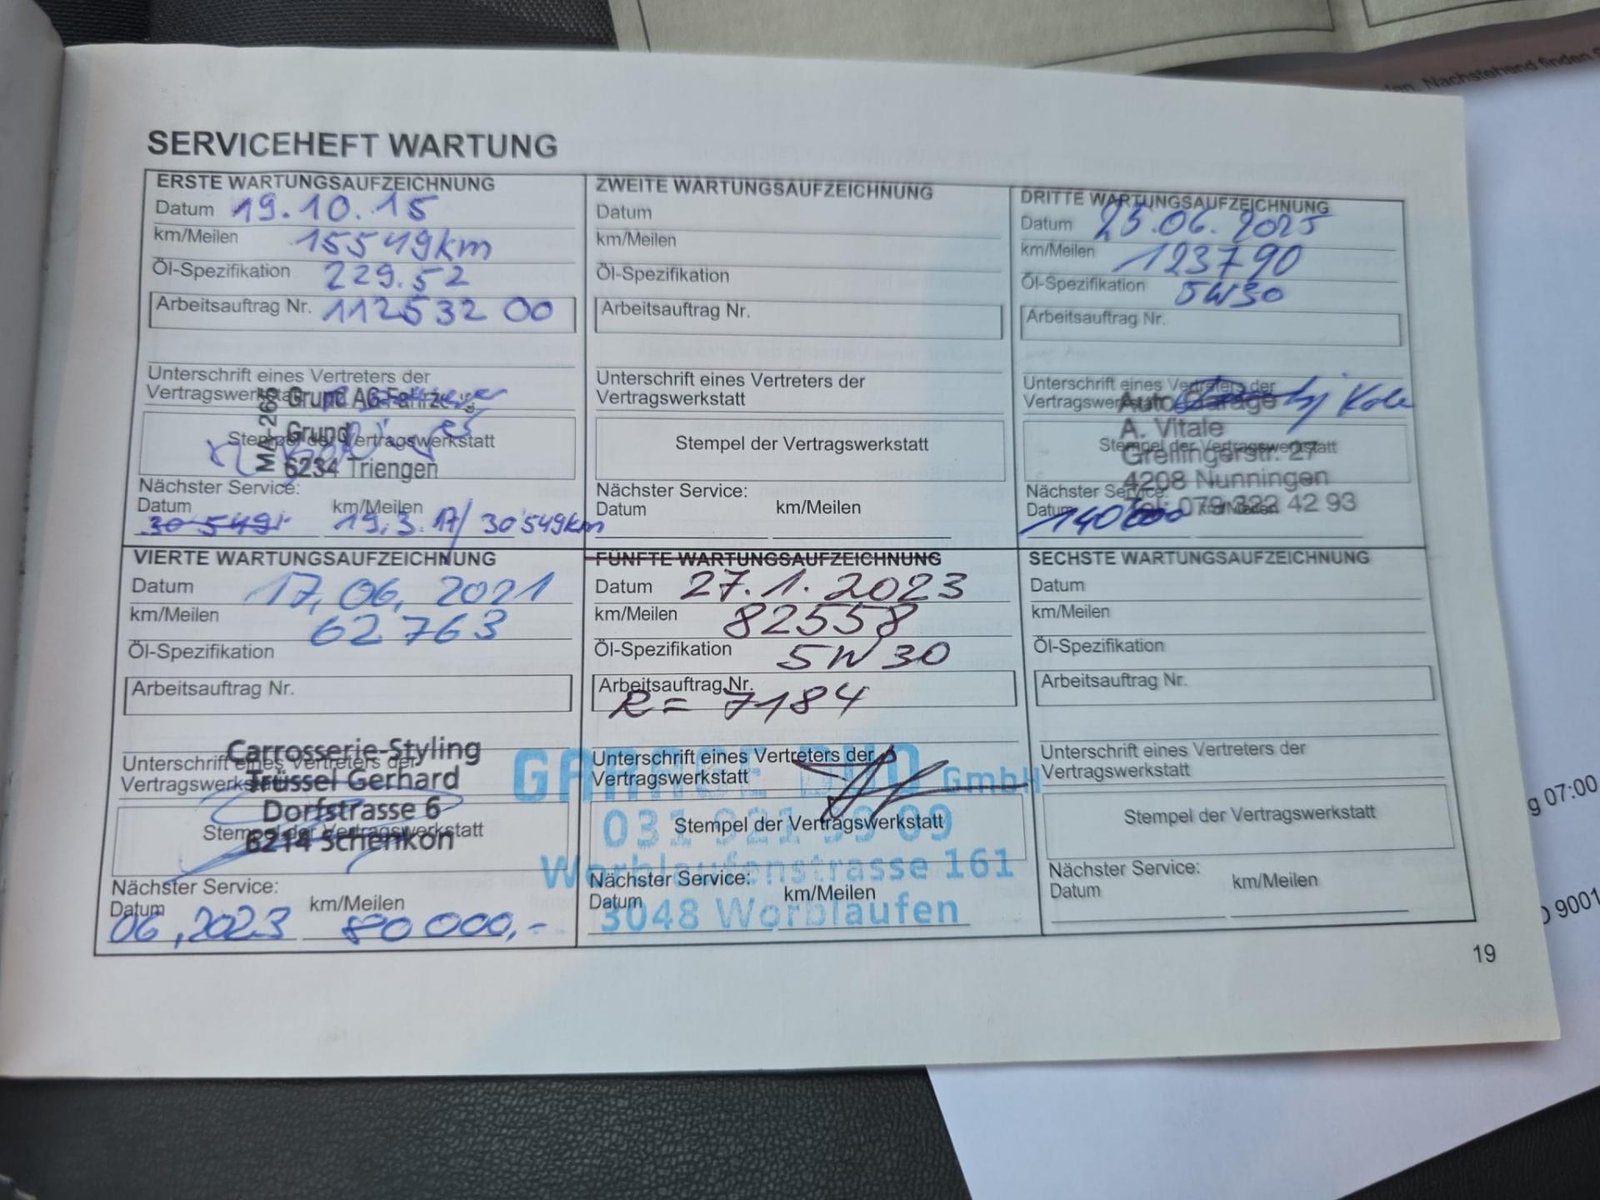 SERVICEHEFT WARTUNG
ERSTE WARTUNGSAUFZEICHNUNG
Datum 19.10.15
km/Meilen 15549km
Öl-Spezifikation 229.52
Arbeitsauftrag Nr. 11253200
Unterschrift eines Vertreters der
Vertragswerkstatt
Grund AG Fahrzeug
Grund
MA-268
Stempel der Vertragswerkstatt
6234 Triengen
Nächster Service:
Datum km/Meilen
30'549 19.3.17/30'549km
ZWEITE WARTUNGSAUFZEICHNUNG
Datum
km/Meilen
Öl-Spezifikation
Arbeitsauftrag Nr.
Unterschrift eines Vertreters der
Vertragswerkstatt
Stempel der Vertragswerkstatt
Nächster Service:
Datum km/Meilen
DRITTE WARTUNGSAUFZEICHNUNG
Datum 23.06.2025
km/Meilen 123790
Öl-Spezifikation 5W30
Arbeitsauftrag Nr.
Unterschrift eines Vertreters der
Vertragswerkstatt
Auto Garage
A. Vitale
Stempel der Vertragswerkstatt
Grellingerstr. 27
4208 Nunningen
Nächster Service:
Tel: 079 322 42 93
Datum km/Meilen
140000
VIERTE WARTUNGSAUFZEICHNUNG
Datum 17.06.2021
km/Meilen 62763
Öl-Spezifikation
Arbeitsauftrag Nr.
Carrosserie-Styling
Unterschrift eines Vertreters der
Vertragswerkstatt
Trüssel Gerhard
Dorfstrasse 6
Stempel der Vertragswerkstatt
6214 Schenkon
Nächster Service:
Datum km/Meilen
06,2023 80000,-
FÜNFTE WARTUNGSAUFZEICHNUNG
Datum 27.1.2023
km/Meilen 82558
Öl-Spezifikation 5W30
Arbeitsauftrag Nr.
R= 7184
Unterschrift eines Vertreters der
Vertragswerkstatt
GmbH
Stempel der Vertragswerkstatt
Worblaufenstrasse 161
Nächster Service:
Datum km/Meilen
3048 Worblaufen
SECHSTE WARTUNGSAUFZEICHNUNG
Datum
km/Meilen
Öl-Spezifikation
Arbeitsauftrag Nr.
Unterschrift eines Vertreters der
Vertragswerkstatt
Stempel der Vertragswerkstatt
Nächster Service:
Datum km/Meilen
19
Nachstehend finden
07:00
9001